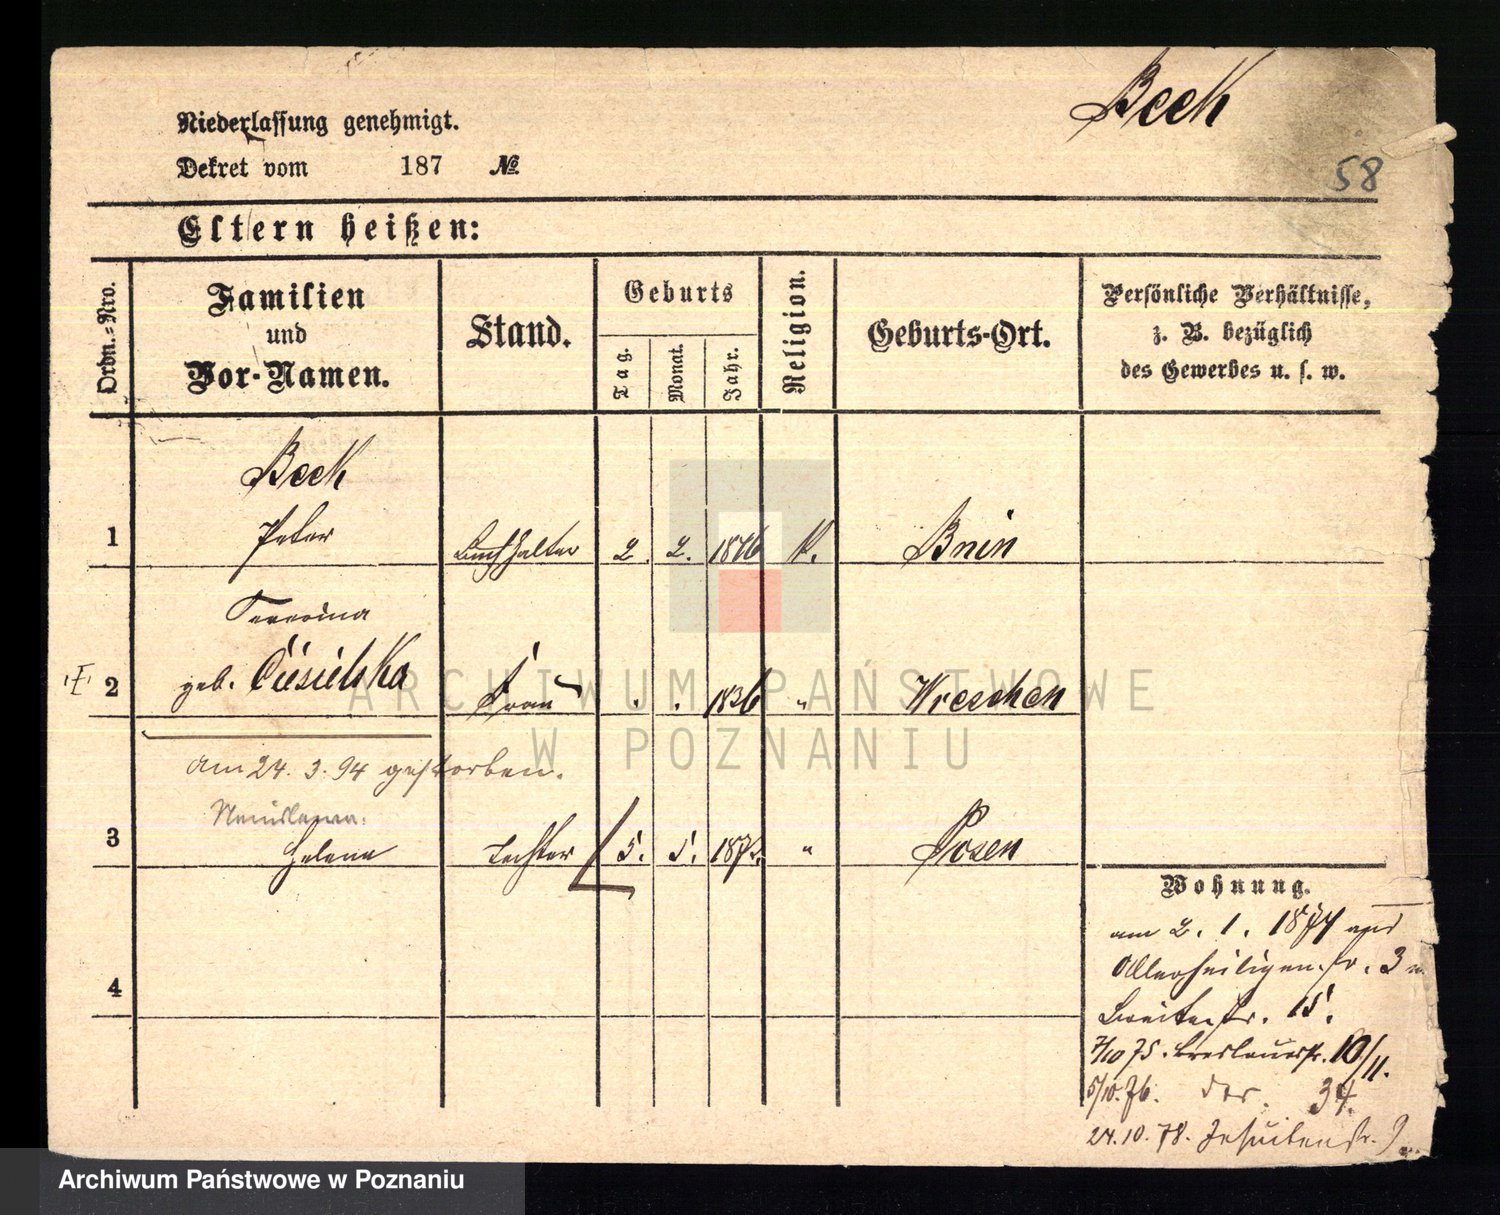 Beck
58
Niederlassung genehmigt.
Dekret vom 187 №
Eltern heißen:
Ordn.-Nro.
Familien
und
Vor-Namen.
Stand.
Geburts
Tag.
Monat.
Jahr.
Religion.
Geburts-Ort.
Persönliche Verhältnisse,
z. B. bezüglich
des Gewerbes u. s. w.
Beck
1 Peter Buchhalter 2. 2. 1846 K. Bnin
Severina
2 geb. Ciesielska Frau . . 1836 " Wreschen
am 24. 3. 94 gestorben.
3 Helena Tochter 5. 5. " Posen
4
Wohnung.
am 2. 1. 1874 aus
Allerheiligen. Str. 3
Breitestr. 15.
7/10 75. Breslauerstr. 10/11.
5/10. 76. 34.
24. 10. 78. Jesuitenstr.
ARCHIWUM PAŃSTWOWE
W POZNANIU
Archiwum Państwowe w Poznaniu